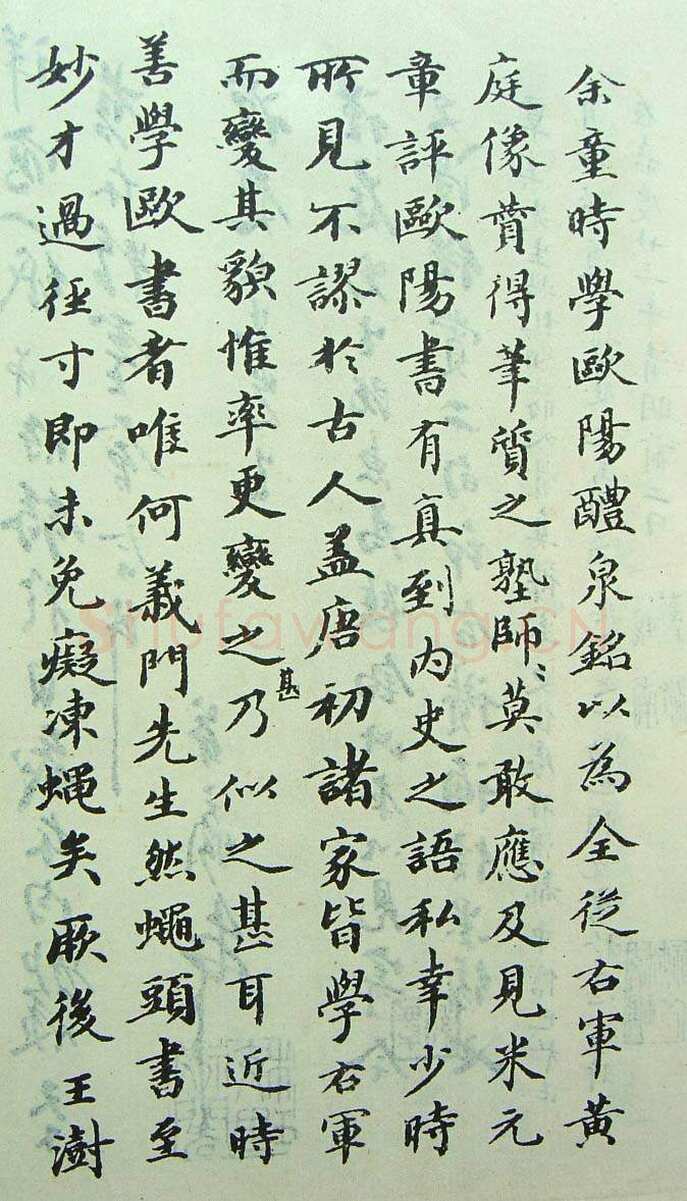 余童時學歐陽醴泉銘以為全從右軍黃
庭像賛得筆質之塾師〻莫敢應及見米元
章評歐陽書有真到內史之語私幸少時
所見不謬於古人盖唐初諸家皆學右軍
而變其貌惟率更變之甚乃似之甚耳近時
善學歐書者唯何義門先生然蠅頭書至
妙才過徑寸即未免癡凍蝇矣厥後王澍
Shufawang.CN